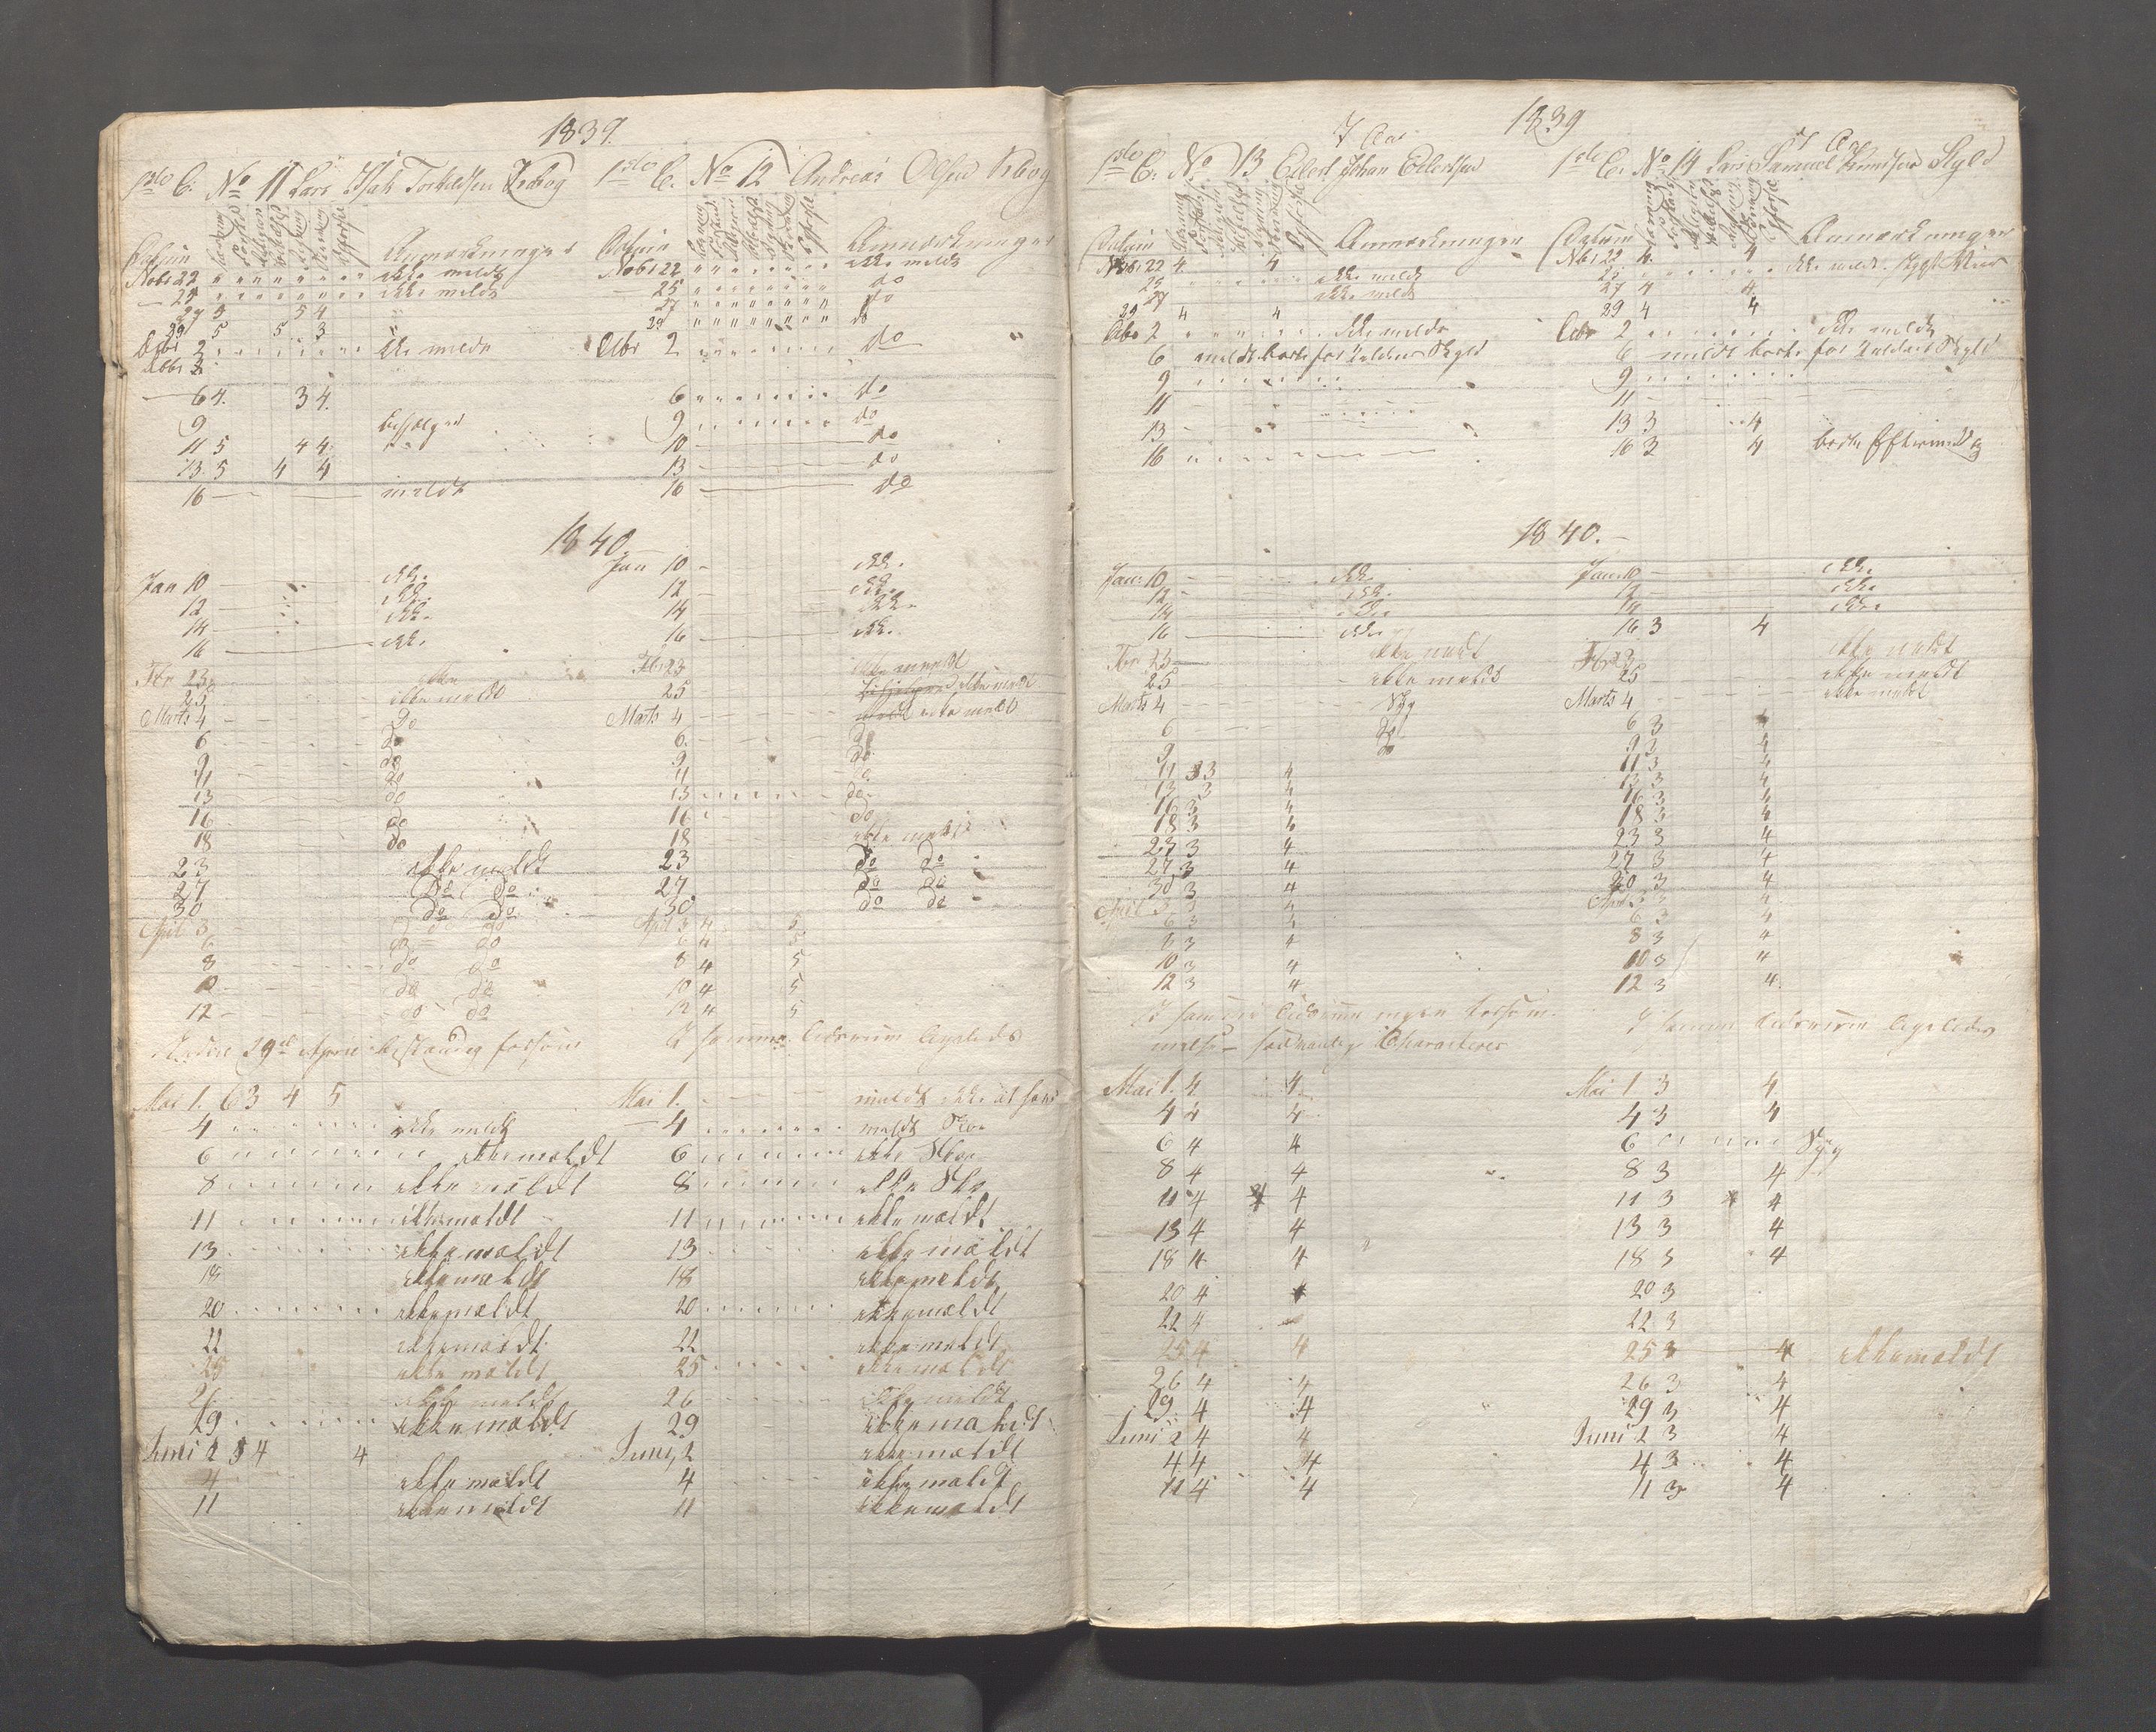 1839.
1ste C. No 11 Lars Isak Torkelsen
Datum Anmærkninger
Nobr 22 ikke meldt
25 ikke meldt
27 5 5 4
29 5 5 3
Dbr 2 ikke meldt
6 4. 3 4.
9
11 5 4 4
13 5 4 4
16 meldt
1840.
Jan 10 ikke.
12 ikke.
14 ikke.
16 ikke.
Fbr 23
25 ikke meldt
Marts 4 do
6 do
9 do
11 do
13 do
16 do
18 do
23 ikke meldt
27 do do
30 do do
April 3 do do
6 do do
8 do do
10 do do
12 do do
29de April bestandig forsømt
Mai 1. 6 3 4 5
4 ikke meldt
6 ikke meldt
8 ikke meldt
11 ikke meldt
13 ikke meldt
18 ikke meldt
20 ikke meldt
22 ikke meldt
25 ikke meldt
26 ikke meldt
29 ikke meldt
Juni 2 3 4 4
4 ikke meldt
11 ikke meldt
1ste C. No 12 Andreas Olsen
Datum Anmærkninger
Nobr 22 ikke meldt
25 do
27 do
29 do
Dbr 2 do
6 do
9 do
10 do
13 do
16 do
Jan 10 ikke.
12 ikke.
14 ikke.
16 ikke.
Fbr 23 ikke meldt
25 ikke meldt
Marts 4 ikke meldt
6. do
9 do
11 do
13 do
16 do
18 ikke meldt
23 do do
27 do do
30 do do
April 3 4 5
6 4 5
8 4 5
10 4 5
12 4 5
I samme Tidsrum ligeledes
Mai 1. meldt ikke at have
4 meldt Skoe
6 ikke Skoe
8 ikke Sko
11 ikke meldt
13 ikke meldt
18 ikke meldt
20 ikke meldt
22 ikke meldt
25 ikke meldt
26 ikke meldt
29 ikke meldt
Juni 2 ikke meldt
4 ikke meldt
11 ikke meldt
1839
7 Aar
1ste C. No 13 Eilert Johan Eilertsen
Datum Anmærkninger
Nobr 22 4 4
25 ikke meldt
27 ikke meldt
29 4 4
Dbr 2 ikke meldt
6 meldt borte for Kuldens Skyld
9
11
13
16
1840.
Jan: 10 ikke.
12 ikke.
14
16 ikke.
Fbr 23 ikke meldt
25 ikke meldt
Marts 4 Syg
6 do
9 do
11 3 4
13 3 4
16 3 4
18 3 4
23 3 4
27 3 4
30 3 4
April 3 3 4
6 3 4
8 3 4
10 3 4
12 3 4
I samme Tidsrum ingen forsøm-
melse - sædvanlige Characterer
Mai 1. 4 4
4 4 4
6 4 4
8 4 4
11 4 4
13 4 4
18 4 4
20 4 4
22 4
25 4 4
26 4 4
29 4 4
Juni 2 4 4
4 4 4
11 4 4
7 Aar
1ste C. No 14 Lars Samuel Knudsen
Datum Anmærkninger
Nbr 22 4. 4
25 ikke meldt.
27 4 4
29 4 4
Dbr 2 ikke meldt
6 meldt borte for Kuldens Skyld
9
11
13 3 4
16 3 4 borte Eftermiddag
Jan: 10 ikke.
12 ikke.
14 ikke.
16 3 4
Fbr 23 ikke meldt
25 ikke meldt
Marts 4 ikke meldt
6 3 4
9 3 4
11 3 4
13 3 4
16 3 4
18 3 4
23 3 4
27 3 4
30 3 4
April 3 3 4
6 3 4
8 3 4
10 3 4
12 3 4.
I samme Tidsrum ligeledes
Mai 1 3 4
4 3 4
6 Syg
8 3 4
11 3 4
13 3 4
18 3 4
20 3
22 3
25 3 4 ikke meldt
26 3 4
29 3 4
Juni 2 3 4
4 3 4
11 3 4